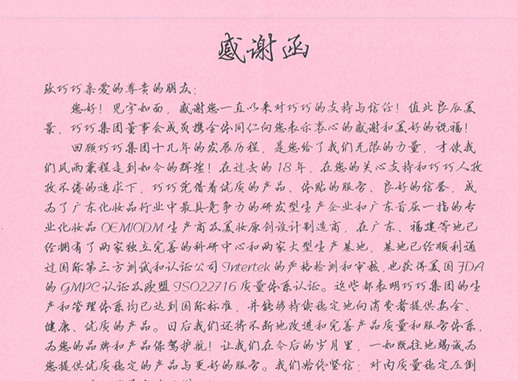 感谢函
致巧巧亲爱的尊贵的朋友：
您好！见字如面，感谢您一直以来对巧巧的支持与信任！值此良辰美
景，巧巧集团董事会成员携全体同仁向您表示衷心的感谢和美好的祝福！
回顾巧巧集团十九年的发展历程，是您给了我们无限的力量，才使我
们风雨兼程走到如今的辉煌！在过去的18年，在您的关心支持和巧巧人孜
孜不倦的追求下，巧巧凭借着优质的产品、体贴的服务、良好的信誉，成
为了广东化妆品行业中最具竞争力的研发型生产企业和广东首屈一指的专
业化妆品OEM/ODM生产商及美妆原创设计制造商，在广东、福建等地已
经拥有了两家独立完善的科研中心和两家大型生产基地，基地已经顺利通
过国际第三方测试和认证公司Intertek的严格检测和审核，也获得美国FDA
的GMPC认证及欧盟ISO22716质量体系认证。这些都表明巧巧集团的生
产和管理体系均已达到国际标准，并能够持续稳定地向消费者提供安全、
健康、优质的产品。日后我们还将不断地改进和完善产品质量和服务体系，
为您的品牌和产品保驾护航！让我们在今后的岁月里，一如既往地竭诚为
您提供优质稳定的产品与更好的服务。我们始终坚信：对内质量稳定压倒